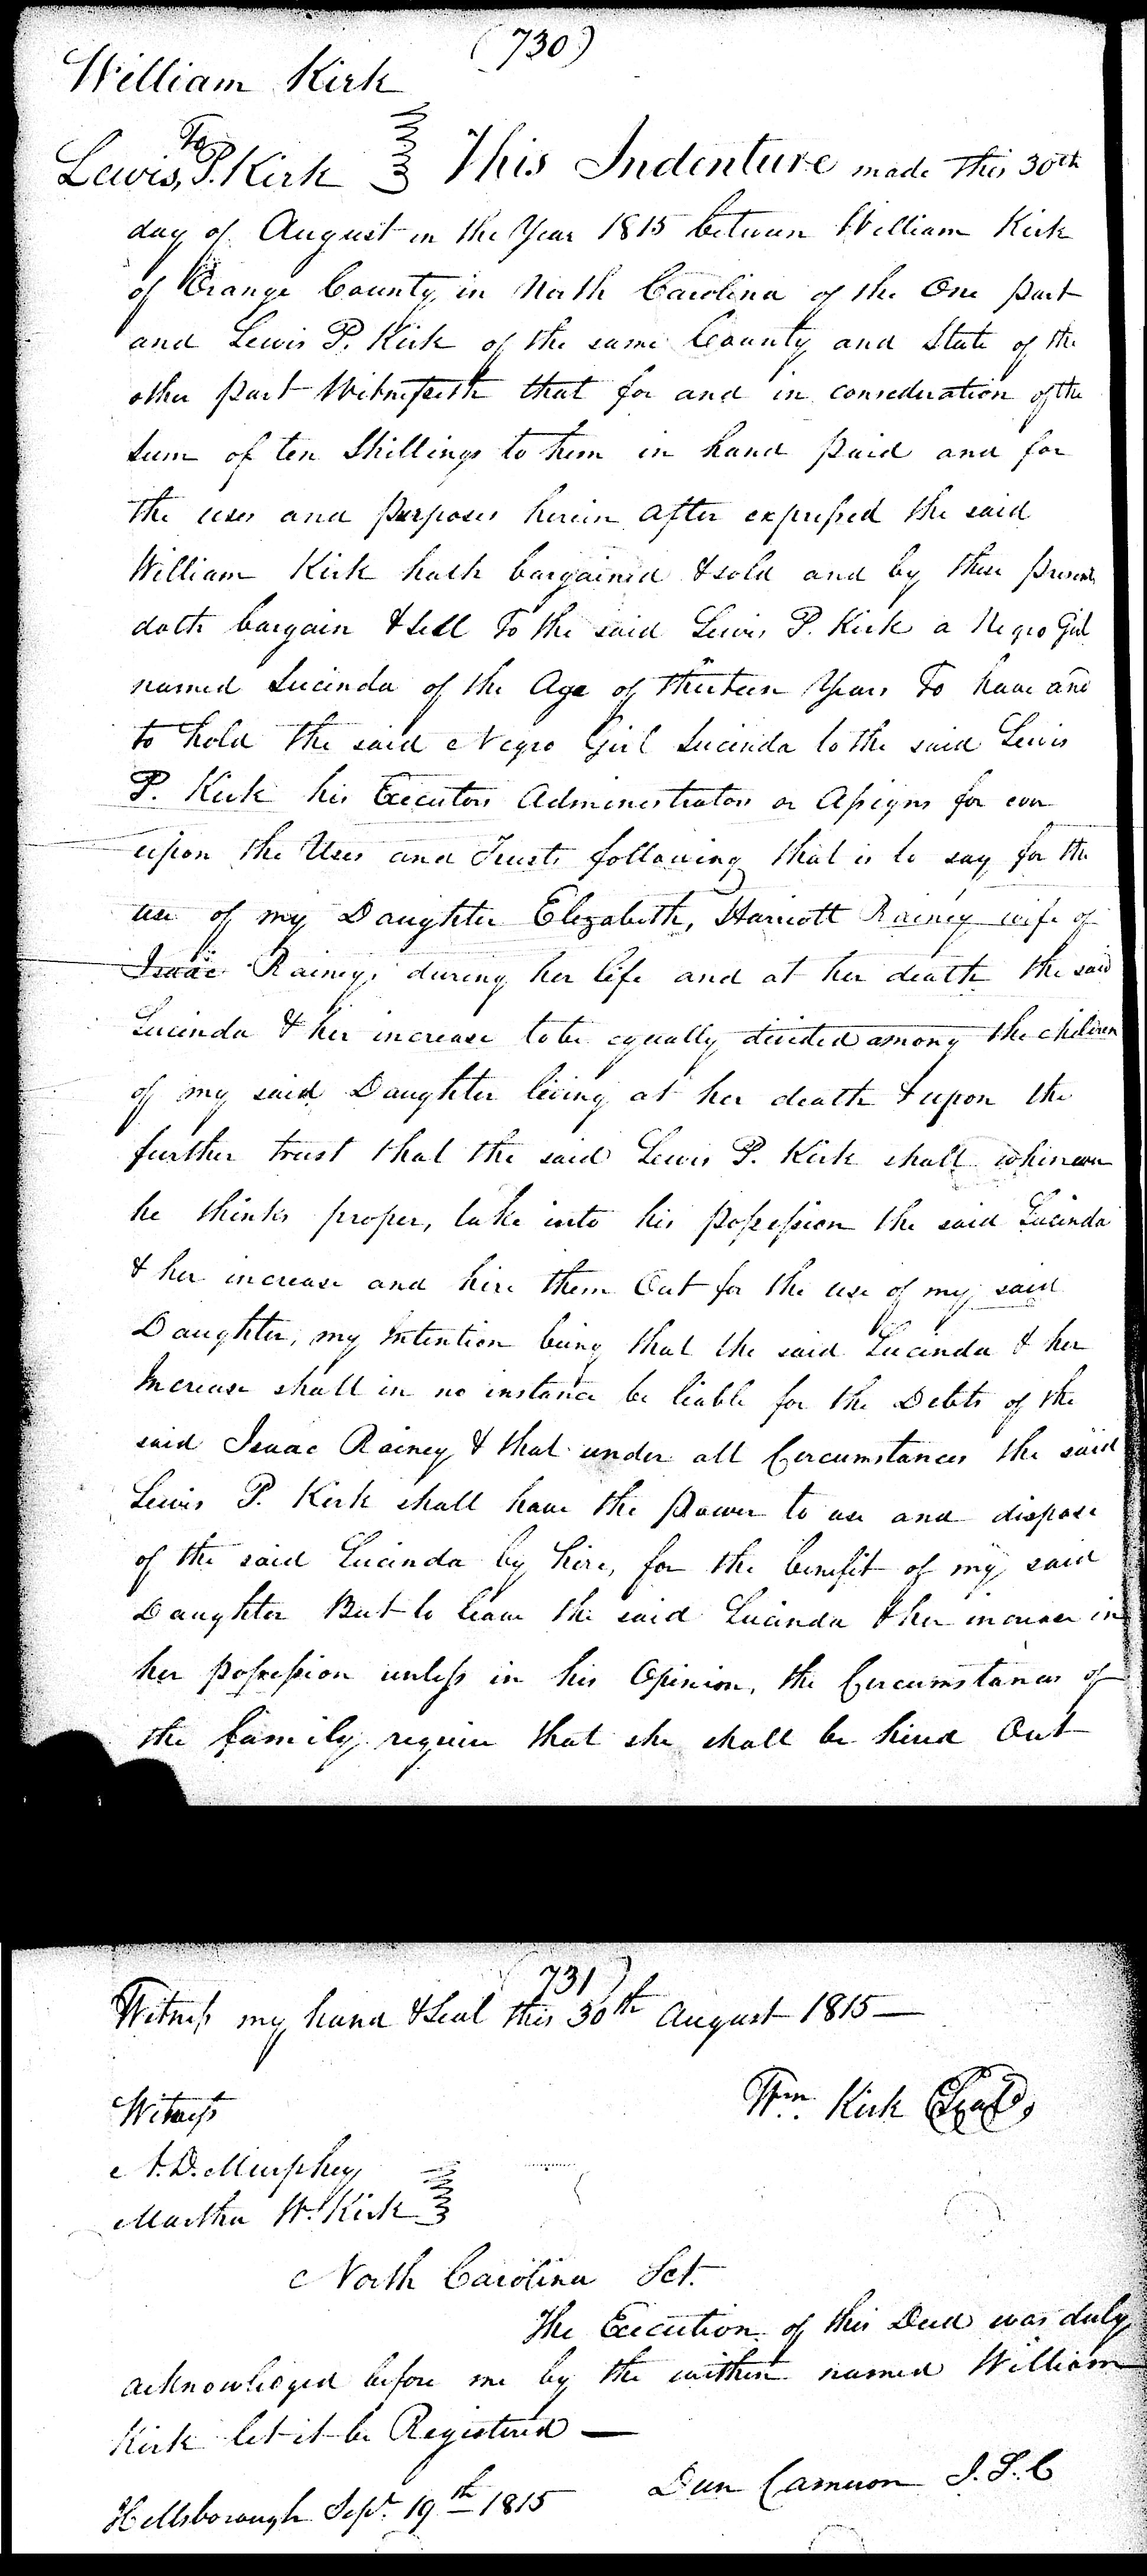 (730)
William Kirk
To
Lewis P. Kirk This Indenture made this 30th
day of August in the Year 1815 between William Kirk
of Orange County in North Carolina of the One part
and Lewis P. Kirk of the same County and State of the
other part Witnesseth that for and in consideration of the
sum of ten Shillings to him in hand paid and for
the uses and purposes herein after expressed the said
William Kirk hath bargained & sold and by these presents
doth bargain & sell To the said Lewis P. Kirk a Negro Girl
named Lucinda of the Age of thirteen Years To have and
to hold the said Negro Girl Lucinda to the said Lewis
P. Kirk his Executors Administrators or Assigns for ever
upon the Uses and Trusts following that is to say for the
use of my Daughter Elizabeth, Harriott Rainey wife of
Isaac Rainey, during her life and at her death the said
Lucinda & her increase to be equally divided among the children
of my said Daughter living at her death & upon the
further trust that the said Lewis P. Kirk shall whenever
he thinks proper, take into his possession the said Lucinda
& her increase and hire them Out for the use of my said
Daughter, my Intention being that the said Lucinda & her
Increase shall in no instance be liable for the Debts of the
said Isaac Rainey & that under all Circumstances the said
Lewis P. Kirk shall have the power to use and dispose
of the said Lucinda by hire, for the benefit of my said
Daughter But to leave the said Lucinda & her increase in
her possession unless in his Opinion, the Circumstances of
the family require that she shall be hired Out
(731)
Witness my hand & Seal this 30th August 1815 —
Wm. Kirk (Seal)
Witness
A. D. Murphey
Martha W. Kirk
North Carolina Sct.
The Execution of this Deed was duly
acknowledged before me by the within named William
Kirk let it be Registered —
Dun Cameron J.S.C
Hillsborough Sept. 19th 1815